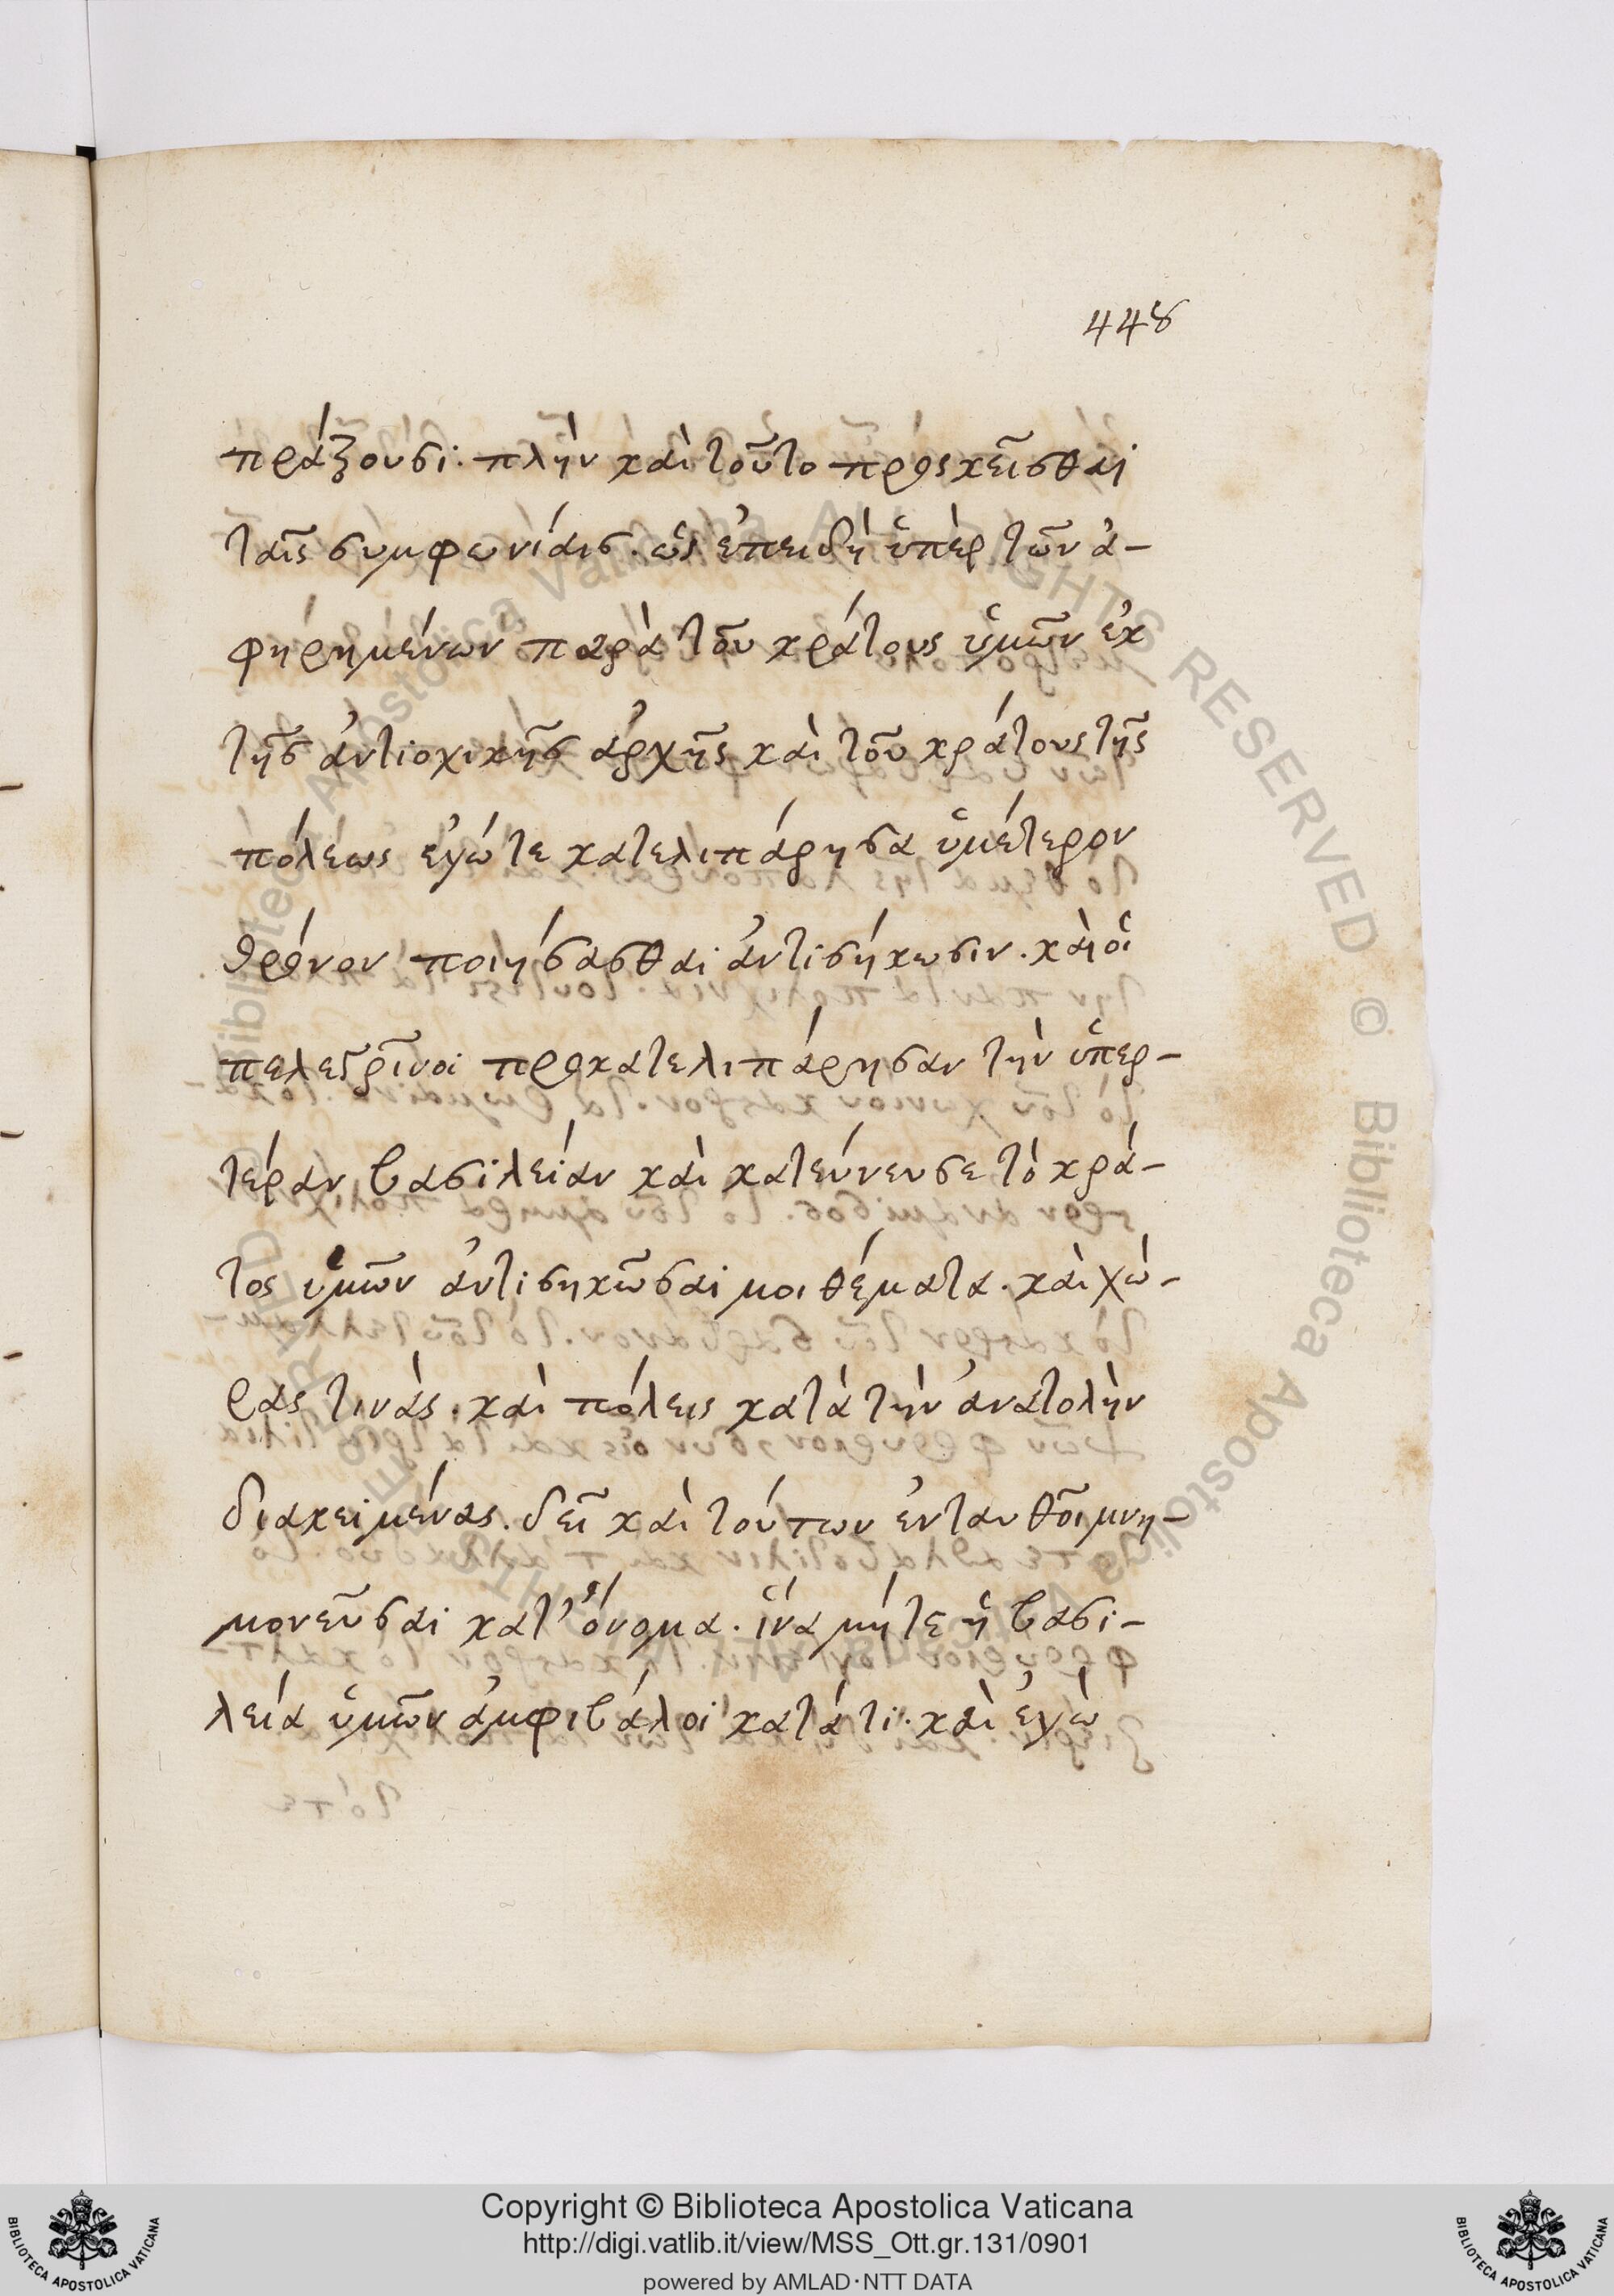 448
πράξουσι. πλὴν καὶ τοῦτο προςκεῖσθαι
ταῖς συμφωνίαις. ὡς ἐπειδὴ ὑπὲρ τῶν ἀ-
φηρημένων παρὰ τοῦ κράτους ὑμῶν ἐκ
τῆς ἀντιοχικῆς ἀρχῆς καὶ τοῦ κράτους τῆς
πόλεως ἐγώ τε κατελιπάρησα ὑμέτερον
θρόνον ποιήσασθαι ἀντισήκωσιν. καὶ οἱ
πελεγρῖνοι προκατελιπάρησαν τὴν ὑπερ-
τέραν βασιλείαν καὶ κατεύνευσε τὸ κρά-
τος ὑμῶν ἀντισηκῶσαι μοι θέματα. καὶ χώ-
ρας τινὰς. καὶ πόλεις κατὰ τὴν ἀνατολὴν
διακειμένας. δεῖ καὶ τούτων ἐνταυθοῖ μνη-
μονεῦσαι κατ' ὄνομα. ἵνα μήτε ἡ βασι-
λεία ὑμῶν ἀμφιβάλοι κατά τι. καὶ ἐγὼ
Copyright © Biblioteca Apostolica Vaticana
http://digi.vatlib.it/view/MSS_Ott.gr.131/0901
powered by AMLAD·NTT DATA
BIBLIOTECA APOSTOLICA VATICANA
BIBLIOTECA APOSTOLICA VATICANA